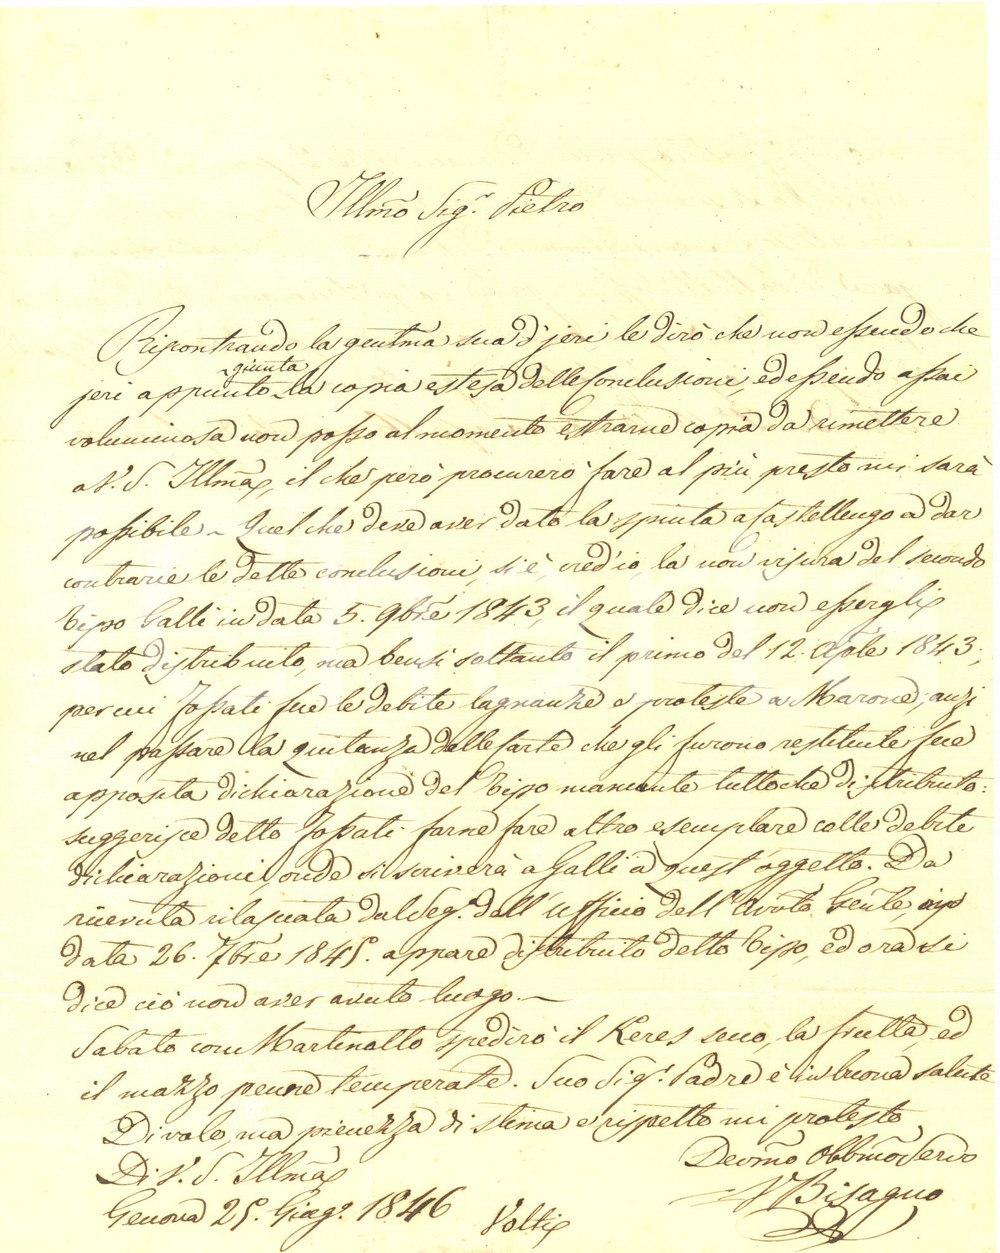 Illmo Sigr. Pietro
Riscontrando la gentma sua d'jeri, le dirò che non essendo che
giunta
jeri appunto la copia estesa delle Conclusioni, ed essendo assai
voluminosa non posso al momento estrarne copia da rimettere
a V. S. Illma, il chè però procurerò fare al più presto mi sarà
possibile ~ Quel che deve aver dato la spinta a Castellengo a dar
contrarie le dette conclusioni, si è, cred'io, la non visura del secondo
Tipo Galli in data 5. 9bre 1843, il quale dice non essergli
stato distribuito, ma bensì soltanto il primo del 12. Aple 1843;
per cui Fossati fue le debite lagnanze e proteste a Marone, anzi
nel passare la quitanza delle Carte che gli furono restituite fece
apposita dichiarazione del Tipo mancante tuttochè distribuito:
suggerisce detto Fossati farne fare altro esemplare colle debite
dichiarazioni, onde si scriverà a Galli a quest'oggetto. Da
ricevuta rilasciata dal Segr. dell'Ufficio dell'Avvto Gente, in
data 26. 7bre 1845. appare distribuito detto Tipo, ed ora si
dice ciò non aver avuto luogo. —
Sabato con Martinotto spedirò il Keres seco, la frutta, ed
il mazzo penne temperate. Suo Sigr. Padre è in buona salute
Di volo, ma pienezza di stima e rispetto mi protesto
Di V. S. Illma
Devmo Obblmo Servo
Genova 25. Giugo. 1846
Bisagno
Volti